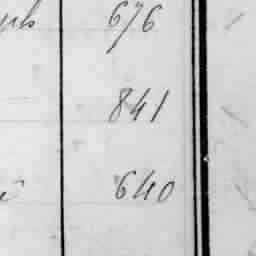 676
841
640